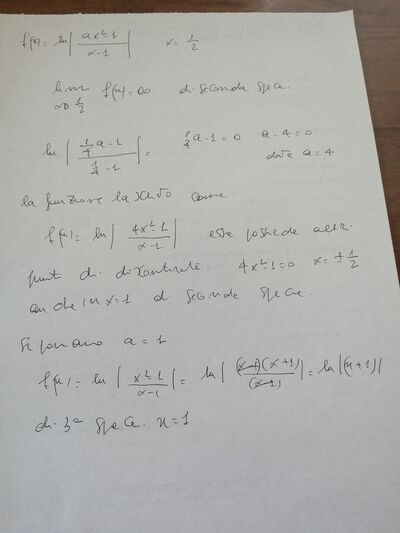 f(x) = ln | ax²-1 / x-1 | x = 1/2
lim x→1/2 f(x) = ∞ di seconda specie
ln | 1/4 a - 1 / 1/2 - 1 | = 1/4 a - 1 = 0 a - 4 = 0
a = 4
la funzione la come
f(x) = ln | 4x²-1 / x-1 | possiede altri
punti di 4x²-1=0 x = ± 1/2
anche in x=1 di seconda specie.
a = 1
f(x) = ln | x²-1 / x-1 | = ln | (x-1)(x+1) / (x-1) | = ln |(x+1)|
di 3ª specie x=1